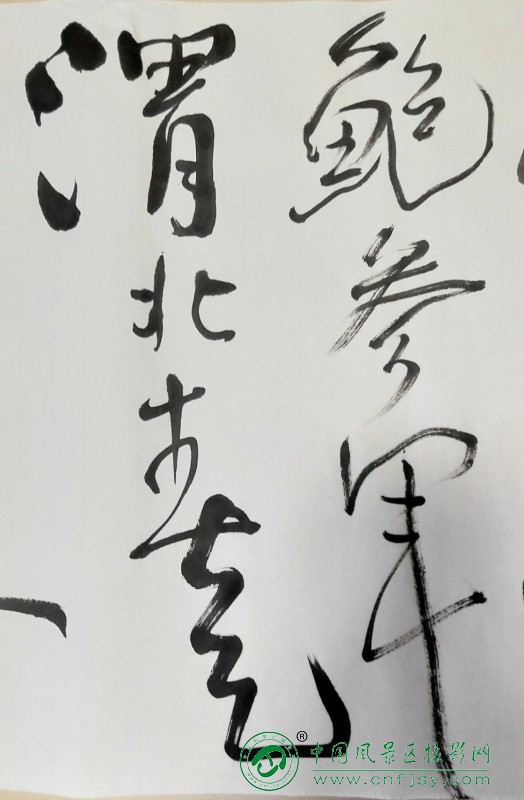 鲍参军
渭北
®
中国风景区摄影网
www.cnfjsy.com